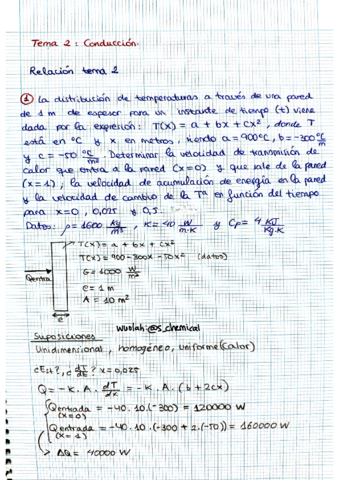 Tema 2: Conducción.
Relación tema 2
① La distribución de temperaturas a través de una pared
de 1 m de espesor para un instante de tiempo (t) viene
dada por la expresión: T(x) = a + bx + cx², donde T
está en °C y x en metros, siendo a = 900°C, b = -300 °C/m
y c = -50 °C/m². Determinar la velocidad de transmisión de
calor que entra a la pared (x=0) y que sale de la pared
(x=1), la velocidad de acumulación de energía en la pared
y la velocidad de cambio de la Tª en función del tiempo
para x=0, 0,025 y 0,5.
Datos: ρ = 1600 kg/m³, K = 40 W/m·K y Cp = 4 KJ/Kg·K
T(x) = a + bx + cx²
T(x) = 900 - 300x - 50x² (datos)
G = 1000 W/m³
e = 1 m
A = 10 m²
Qentra
e
wuolah: @s_chemical
Suposiciones
Unidimensional, homogéneo, uniforme (calor)
¿E?, ¿dT/dt? x = 0,025
Q = -K·A·dT/dx = -K·A·(b + 2cx)
Qentrada = -40·10·(-300) = 120000 W
(x=0)
Qentrada = -40·10·(-300 + 2·(-50)) = 160000 W
(x=1)
> ΔQ = 40000 W